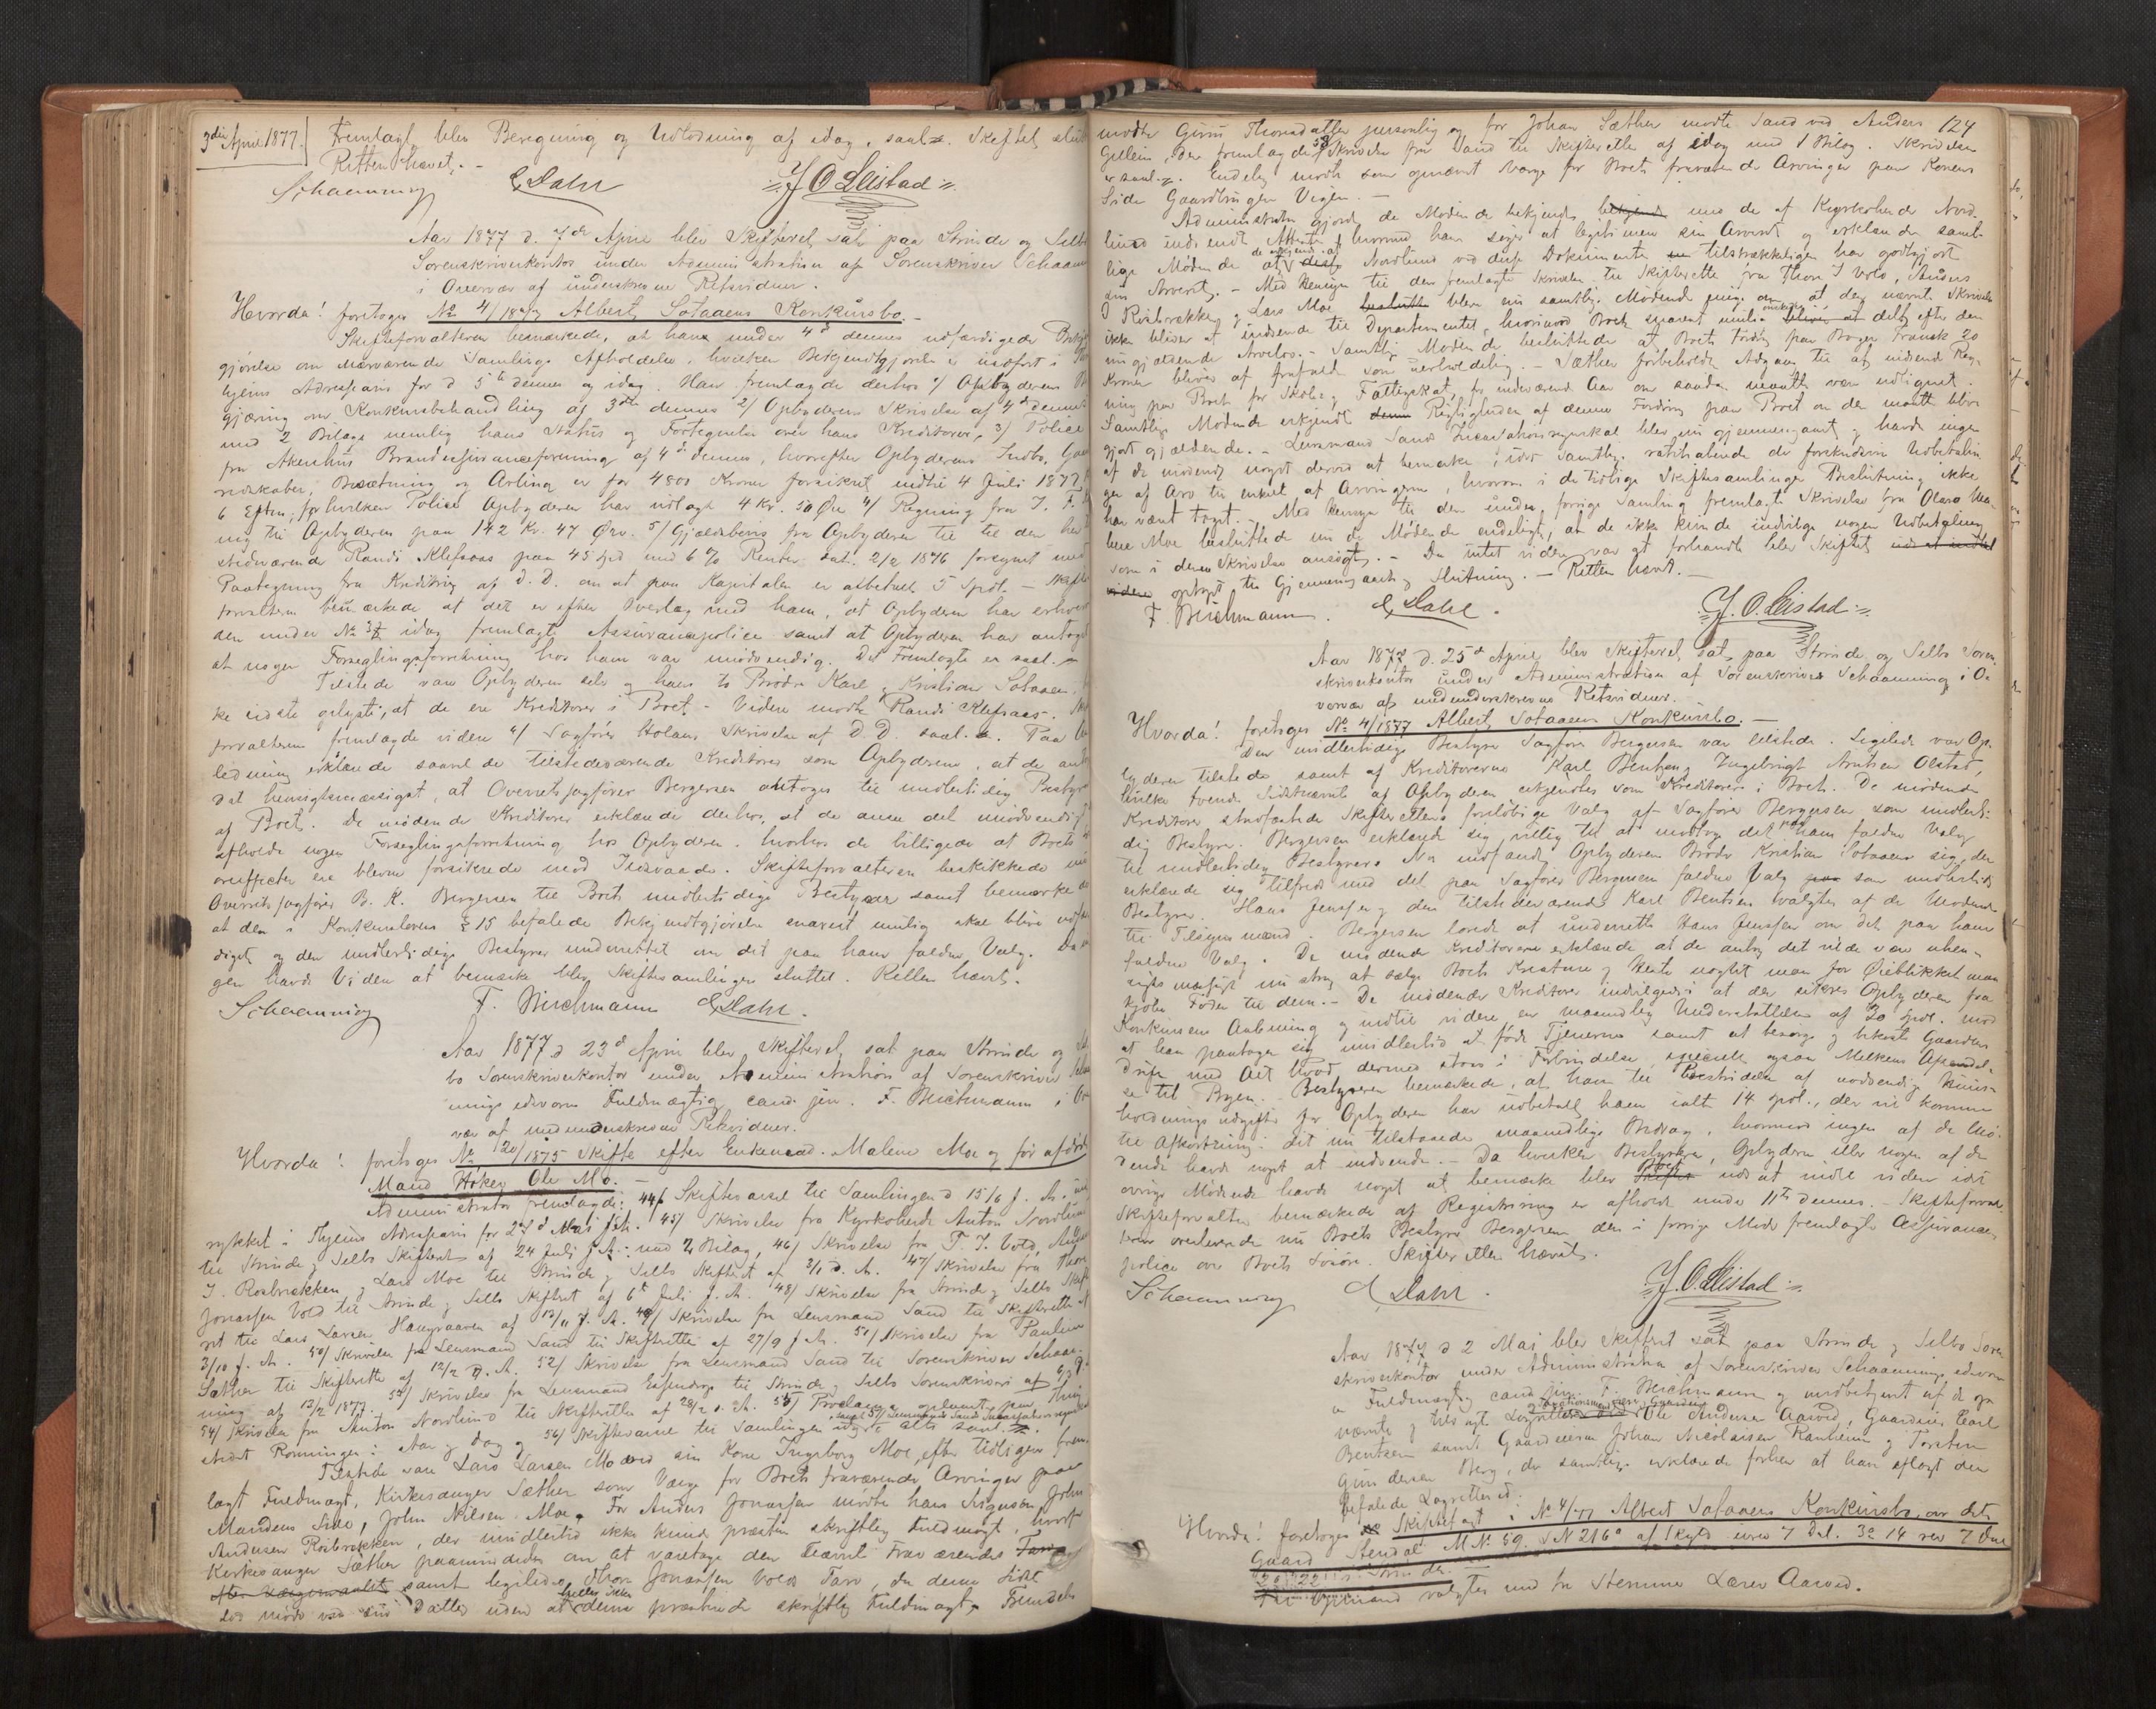 3die April 1877. Fremlagt blev Beregning og Udlodning af idag, saal. Skiftet slut
Retten hævet. -
Schaanning EDahl J O Leistad
Aar 1877 d. 7de April blev Skifteret sat paa Strinde og Selb
Sorenskriverkontor under Administration af Sorenskriver Schaan
i Overvær af underskrevne Retsvidner.
Hvorda! foretoges No 4/1877 Albert Sotaaens Konkursbo. -
Skifteforvalteren bemærkede, at han under 4d dennes udfærdigede Bekj
gjørelse om nærværende Samlings Afholdelse, hvilken Bekjendtgjørelse er indført i
hjems Adresseavis for d 5te dennes og idag. Han fremlagde derhos 1/ Opbyderens
gjæring om Konkursbehandling af 3die dennes 2/ Opbyderens Skrivelse af 4d dennes
med 2 Bilage nemlig hans Status og Fortegnelse over hans Kreditorer, 3/ Police
fra Akershus Brandassuranceforening af 4d dennes, hvorefter Opbyderens Indbo, Gaa
redskaber, Besætning og Avling er for 4800 Kroner forsikret indtil 4 Juli 1877
6 Eftm; for hvilken Police Opbyderen har udlagt 4 Kr. 50 Øre 4/ Regning fra J. F.
til Opbyderen paa 142 Kr. 47 Øre. 5/ Gjældsbevis fra Opbyderen til til den her
stedværende Randi Klefsaas paa 45 Spd med 6 % Renter dat. 2/2 1876 forsynet med
Paategning fra Kreditrix af d. D. om at paa Kapitalen er afbetalt 5 Spdl. - Skifte
forvalteren bemærkede at det er efter Overlæg med ham, at Opbyderen har erhver
den under No 3 idag fremlagte Assurancepolice samt at Opbyderen har antaget
at nogen Forseglingsforretning hos ham var unødvendig. Det Fremlagte er saal.
Tilstede vare Opbyderen selv og hans to Brødre Karl og Kristian Sotaaen,
ke sidste oplyste, at de ere Kreditorer i Boet. - Videre mødte Randi Klefsaas.
forvalteren fremlagde videre 6/ Sagfører Holans Skrivelse af D. D. saal. Paa
ledning erklærede saavel de tilstedeværende Kreditorer som Opbyderen, at de an
det hensigtsmæssigst, at Overretssagfører Bergersen antoges til midlertidig Bestyr
af Boet. De mødende Kreditorer erklærede derhos, at de ansee det unødvendigt
afholde nogen Forseglingsforretning hos Opbyderen. hvorhos de billigede at Boets
øreffecter ere blevne forsikrede mod Ildsvaade. Skifteforvalteren beskikkede
Overretssagfører B. K. Bergersen til Boets midlertidige Bestyrer samt bemærkede
at den i Konkurslovens § 15 befalede Bekjendtgjørelse snarest mulig skal blive udfær
diget og den midlertidige Bestyrer underrettet om det paa ham faldne Valg. Da
gen havde Videre at bemærke blev Skiftesamlingen sluttet. Retten hævet.
Schaanning F. Michmann EDahl.
Aar 1877 d 23d April blev Skifteret sat paa Strinde og
bo Sorenskriverkontor under Administration af Sorenskriver Schaa
nings edsvorne Fuldmægtig cand. jur. F. Michmann i Over
vær af medunderskrevne Retsvidner.
Hvorda! foretoges No 120/1875 Skifte efter Enkemad. Malene Moe og før afdøde
Mand Høker Ole Mo. -
Administrator fremlagde: 44/ Skiftevarsel til Samlingen d 15/6 f. A. ind
rykket i Thjems Adresseavis for 27d Mai f. A. 45/ Skrivelse fra Kyrkoherde Anton Nordlund
til Strinde og Selbo Skifteret af 24 Juli f. A. med 2 Bilag, 46/ Skrivelse fra T. J. Vold, Anders
J. Rosbrækken og Lars Moe til Strinde og Selbo Skifteret af 3/1 d. A. 47/ Skrivelse fra Thore
Jonassen Vold til Strinde og Selbo Skifteret af 6te Juli f. A. 48/ Skrivelse fra Strinde og Selbo Skif
ret til Lars Larsen Haugraaren af 13/11 f. A. 49/ Skrivelse fra Lensmand Sand til Skifteretten af
3/10 f. A. 50/ Skrivelse fra Lensmand Sand til Skifteretten af 27/9 f. A. 51/ Skrivelse fra Pauline
Sæther til Skifteretten af 12/2 d. A. 52/ Skrivelse fra Lensmand Sand til Sorenskriver Schaan-
ning af 13/2 1877. 53/ Skrivelse fra Lensmand Essendrop til Strinde og Selbo Sorenskriveri af
54/ Skrivelse fra Anton Nordlund til Skifteretten af 28/2 d. A. 55/ Proclama oplæst paa Thing
stedet Ronningen i Aar og Dag og 56/ Skiftevarsel til Samlingen idag alt saal.
Tilstede vare Lars Larsen Mo med sin Kone Ingeborg Moe, efter tidligere frem-
lagt Fuldmagt, Kirkesanger Sæther som Værge for Boets fraværende Arvinger paa
Mandens Side, John Nilsen Moe. For Anders Jonassen mødte hans Svigersøn John
Andersen Rosbrækken, der imidlertid ikke kunde præstere skriftlig Fuldmagt, hvorfor
Kirkesanger Sæther paamindedes om at varetage den nævnte Fraværendes Tarv
samt ligeledes Thore Jonassen Volds Tarv, da denne sidst
lod møde ved sin Datter uden at heller ikke denne præsterede skriftlig Fuldmagt. Fremdeles
mødte Guru Thorsdatter personlig og for Johan Sæther mødte Sand ved Anders 124
Gellein, der fremlagde 58/ Skrivelse fra Sand til Skifteretten af idag med 1 Bilag. Skrivelsen
er saal. Endelig mødte som opnævnt Værge for Boets fraværende Arvinger paa Konens
Side Gaardbruger Vigen. -
Administrator gjorde de Mødende bekjendt med de af Kyrkoherde Nord-
lund indsendte Attester hvormed han søger at legitimere sin Arveret og erklærede samt-
lige Mødende at de ansee at Nordlund ved disse Dokumenter tilstrækkeligen har godtgjort
sin Arveret. - Med Hensyn til den fremlagte Skrivelse til Skifteretten fra Thore J Vold, Anders
J Rosbrækken og Lars Moe bleve nu samtlige Mødende enige om at den nævnte Skrivelse
ikke bliver at indsende til Departementet, hvorimod Boet snarest mulig ønskedes delt efter den
nu gjældende Arvelov. - Samtlige Mødende besluttede at Boets Fordring paa Borger Fransk 20
Kroner bliver at frafalde som uerholdelig. - Sæther forbeholdt Adgang til at indsende Reg-
ning paa Boet for Skole og Fattigskat, for indeværende Aar om saadan maatte være udlignet.
Samtlige Mødende erkjendte Rigtigheden af denne Fordring paa Boet om den maatte blive
gjort gjældende. - Lensmand Sands Incassationsregnskab blev nu gjennemgaaet og havde ingen
af de mødende noget derved at bemærke, idet samtlige ratihaberede de foreskudsvise Udbetalin
ger af Arv til enkelt af Arvingerne, hvorom i de tidlige Skiftesamlinger Beslutning ikke
har vært taget. - Med Hensyn til den under forrige Samling fremlagte Skrivelse fra Olava Ma-
lene Moe besluttede nu de Mødende endeligt, at de ikke kunde indvilge nogen Udbetaling
som i denne Skrivelse ansøgt. - Da intet videre var at forhandle blev Skiftet
optaget til Gjennemgaaelse og Slutning. - Retten hævet. -
F. Michmann. EDahl. J. O. Leistad
Aar 1877 d. 25d April blev Skifteret sat paa Strinde og Selbo Soren-
skriverkontor under Administration af Sorenskriver Schaanning i O-
vervær af medunderskrevne Retsvidner.
Hvorda! foretoges No 4/1877 Albert Sotaaens Konkursbo. -
Den midlertidige Bestyrer Sagfører Bergersen var tilstede. Ligeledes var Op-
byderen tilstede samt af Kreditorerne Karl Bentzen og Ingebrigt Arntsen Olstad,
hvilke tvende Sidstnævnte af Opbyderen erkjendtes som Kreditorer i Boet. De mødende
Kreditorer stadfæstede Skifterettens foreløbige Valg af Sagfører Bergersen som midlerti-
dig Bestyrer. Bergersen erklærede sig villig til at modtage det paa ham faldne Valg
til midlertidig Bestyrer. Nu indfandt Opbyderens Broder Kristian Sotaaen sig, der
erklærede sig tilfreds med det paa Sagfører Bergersen faldne Valg som midlertidig
Bestyrer. Hans Jenssen og den tilstedeværende Karl Bentsen valgtes af de Mødende
til Tilsynsmænd. Bergersen lovede at underrette Hans Jenssen om det paa ham
faldne Valg. De mødende Kreditorer erklærede at de antog det vilde være uhen-
sigtsmæssigt nu strax at sælge Boets Kreature og Heste uagtet man for Øieblikket maa
kjøbe Foder til dem. - De mødende Kreditorer indvilgede i at der sikres Opbyderen fra
Konkursens Aabning og indtil videre en maanedlig Understøttelse af 20 Spdl. mod
at han paatager sig imidlertid at føde Tjenerne samt at besørge og bekoste Gaardens
Drift med Alt hvad dermed staar i Forbindelse, specielt ogsaa Melkens Afsendel-
se til Byen. - Bestyreren bemærkede, at han til Bestridelse af nødvendige Huus-
holdningsudgifter for Opbyderen har udbetalt ham ialt 14 Spd., der vil komme
til Afkortning i det nu tilstaaede maanedlige Bidrag, hvorimod ingen af de Mø-
dende havde noget at indvende. - Da hverken Bestyreren, Opbyderen eller nogen af de
øvrige Mødende havde noget at bemærke blev Boet udsat indtil videre idet
Skifteforvalteren bemærkede at Registrering er afholdt under 11te dennes. - Skifteforval
teren overleverede nu Boets Bestyrer Bergersen den i forrige Møde fremlagte Assurance-
police over Boets Løsøre. Skifteretten hævet.
Schaanning EDahl. J. O. Leistad
Aar 1877 d 2 Mai blev Skifteret sat paa Strinde og Selbo Soren
skriverkontor under Administration af Sorenskriver Schaannings edsvor
n Fuldmægtig cand jur. F. Michmann og medbetjent af de op
nævnte og tilsagte Ole Andersen Aarvod, Gaardeier Carl
Bentzen samt Gaardeierne Johan Nicolaisen Ranheim og Torsten
Gundersen Berg, der samtlige erklærede forhen at have aflagt den
befalede Lagretteed.
Hvorda! foretoges Skiftetaxt i No 4/77 Albert Sotaaens Konkursbo, over dets
Gaard Stendal M No 59. L N 216a af Skyld urev 7 Dal. 3o 14 rev 7 Dal
2o 22 i Strinden.
Til Formand valgtes med tre Stemmer Lærer Aarvod.